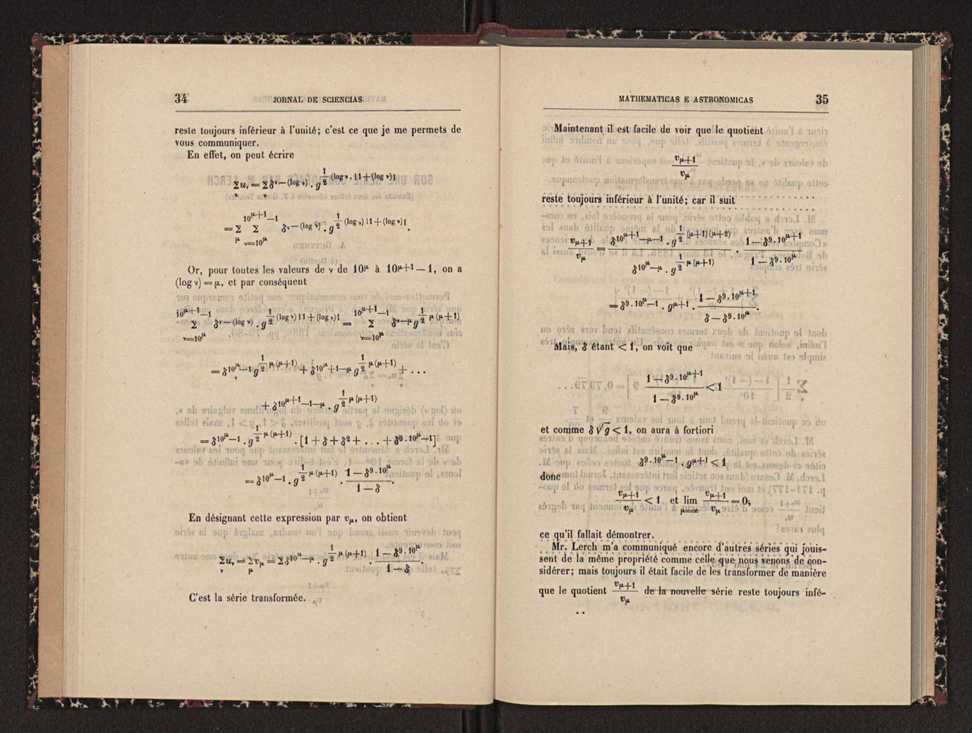 34 JORNAL DE SCIENCIAS
reste toujours inférieur à l'unité; c'est ce que je me permets de
vous communiquer.
En effet, on peut écrire
Σu_ν = Σδ^{ν−(log ν)} . g^{½ (log ν) [1+(log ν)]}
ν ν
= Σ_μ Σ_{ν=10^μ}^{10^{μ+1}−1} δ^{ν−(log ν)} . g^{½ (log ν) [1+(log ν)]}.
Or, pour toutes les valeurs de ν de 10^μ à 10^{μ+1} — 1, on a
(log ν) = μ, et par conséquent
Σ_{ν=10^μ}^{10^{μ+1}−1} δ^{ν−(log ν)} . g^{½ (log ν) [1+(log ν)]} = Σ_{ν=10^μ}^{10^{μ+1}−1} δ^{ν−μ} g^{½ μ (μ+1)}
= δ^{10^μ−μ} g^{½ μ (μ+1)} + δ^{10^μ+1−μ} g^{½ μ (μ+1)} + . . .
+ δ^{10^{μ+1}−1−μ} . g^{½ μ (μ+1)}
= δ^{10^μ−μ} . g^{½ μ (μ+1)} . [1 + δ + δ² + . . . + δ^{9 . 10^μ−1}]
= δ^{10^μ−μ} . g^{½ μ (μ+1)} . (1 − δ^{9 . 10^μ}) / (1 − δ).
En désignant cette expression par v_μ, on obtient
Σu_ν = Σv_μ = Σδ^{10^μ−μ} . g^{½ μ (μ+1)} . (1 − δ^{9 . 10^μ}) / (1 − δ).
ν μ
C'est la série transformée.
MATHEMATICAS E ASTRONOMICAS 35
Maintenant il est facile de voir que le quotient
v_{μ+1} / v_μ
reste toujours inférieur à l'unité; car il suit
v_{μ+1} / v_μ = (δ^{10^{μ+1}−μ−1} . g^{½ (μ+1) (μ+2)}) / (δ^{10^μ−μ} . g^{½ μ (μ+1)}) . (1 − δ^{9 . 10^{μ+1}}) / (1 − δ^{9 . 10^μ})
= δ^{9 . 10^μ−1} . g^{μ+1} . (1 − δ^{9 . 10^{μ+1}}) / (δ − δ^{9 . 10^μ}).
Mais, δ étant < 1, on voit que
(1 − δ^{9 . 10^{μ+1}}) / (1 − δ^{9 . 10^μ}) < 1
et comme δ √g < 1, on aura à fortiori
δ^{9 . 10^μ−1} . g^{μ+1} < 1
donc
v_{μ+1} / v_μ < 1 et lim_{μ=∞} v_{μ+1} / v_μ = 0,
ce qu'il fallait démontrer.
Mr. Lerch m'a communiqué encore d'autres séries qui jouis-
sent de la même propriété comme celle que nous venons de con-
sidérer; mais toujours il était facile de les transformer de manière
que le quotient v_{μ+1} / v_μ de la nouvelle série reste toujours infé-